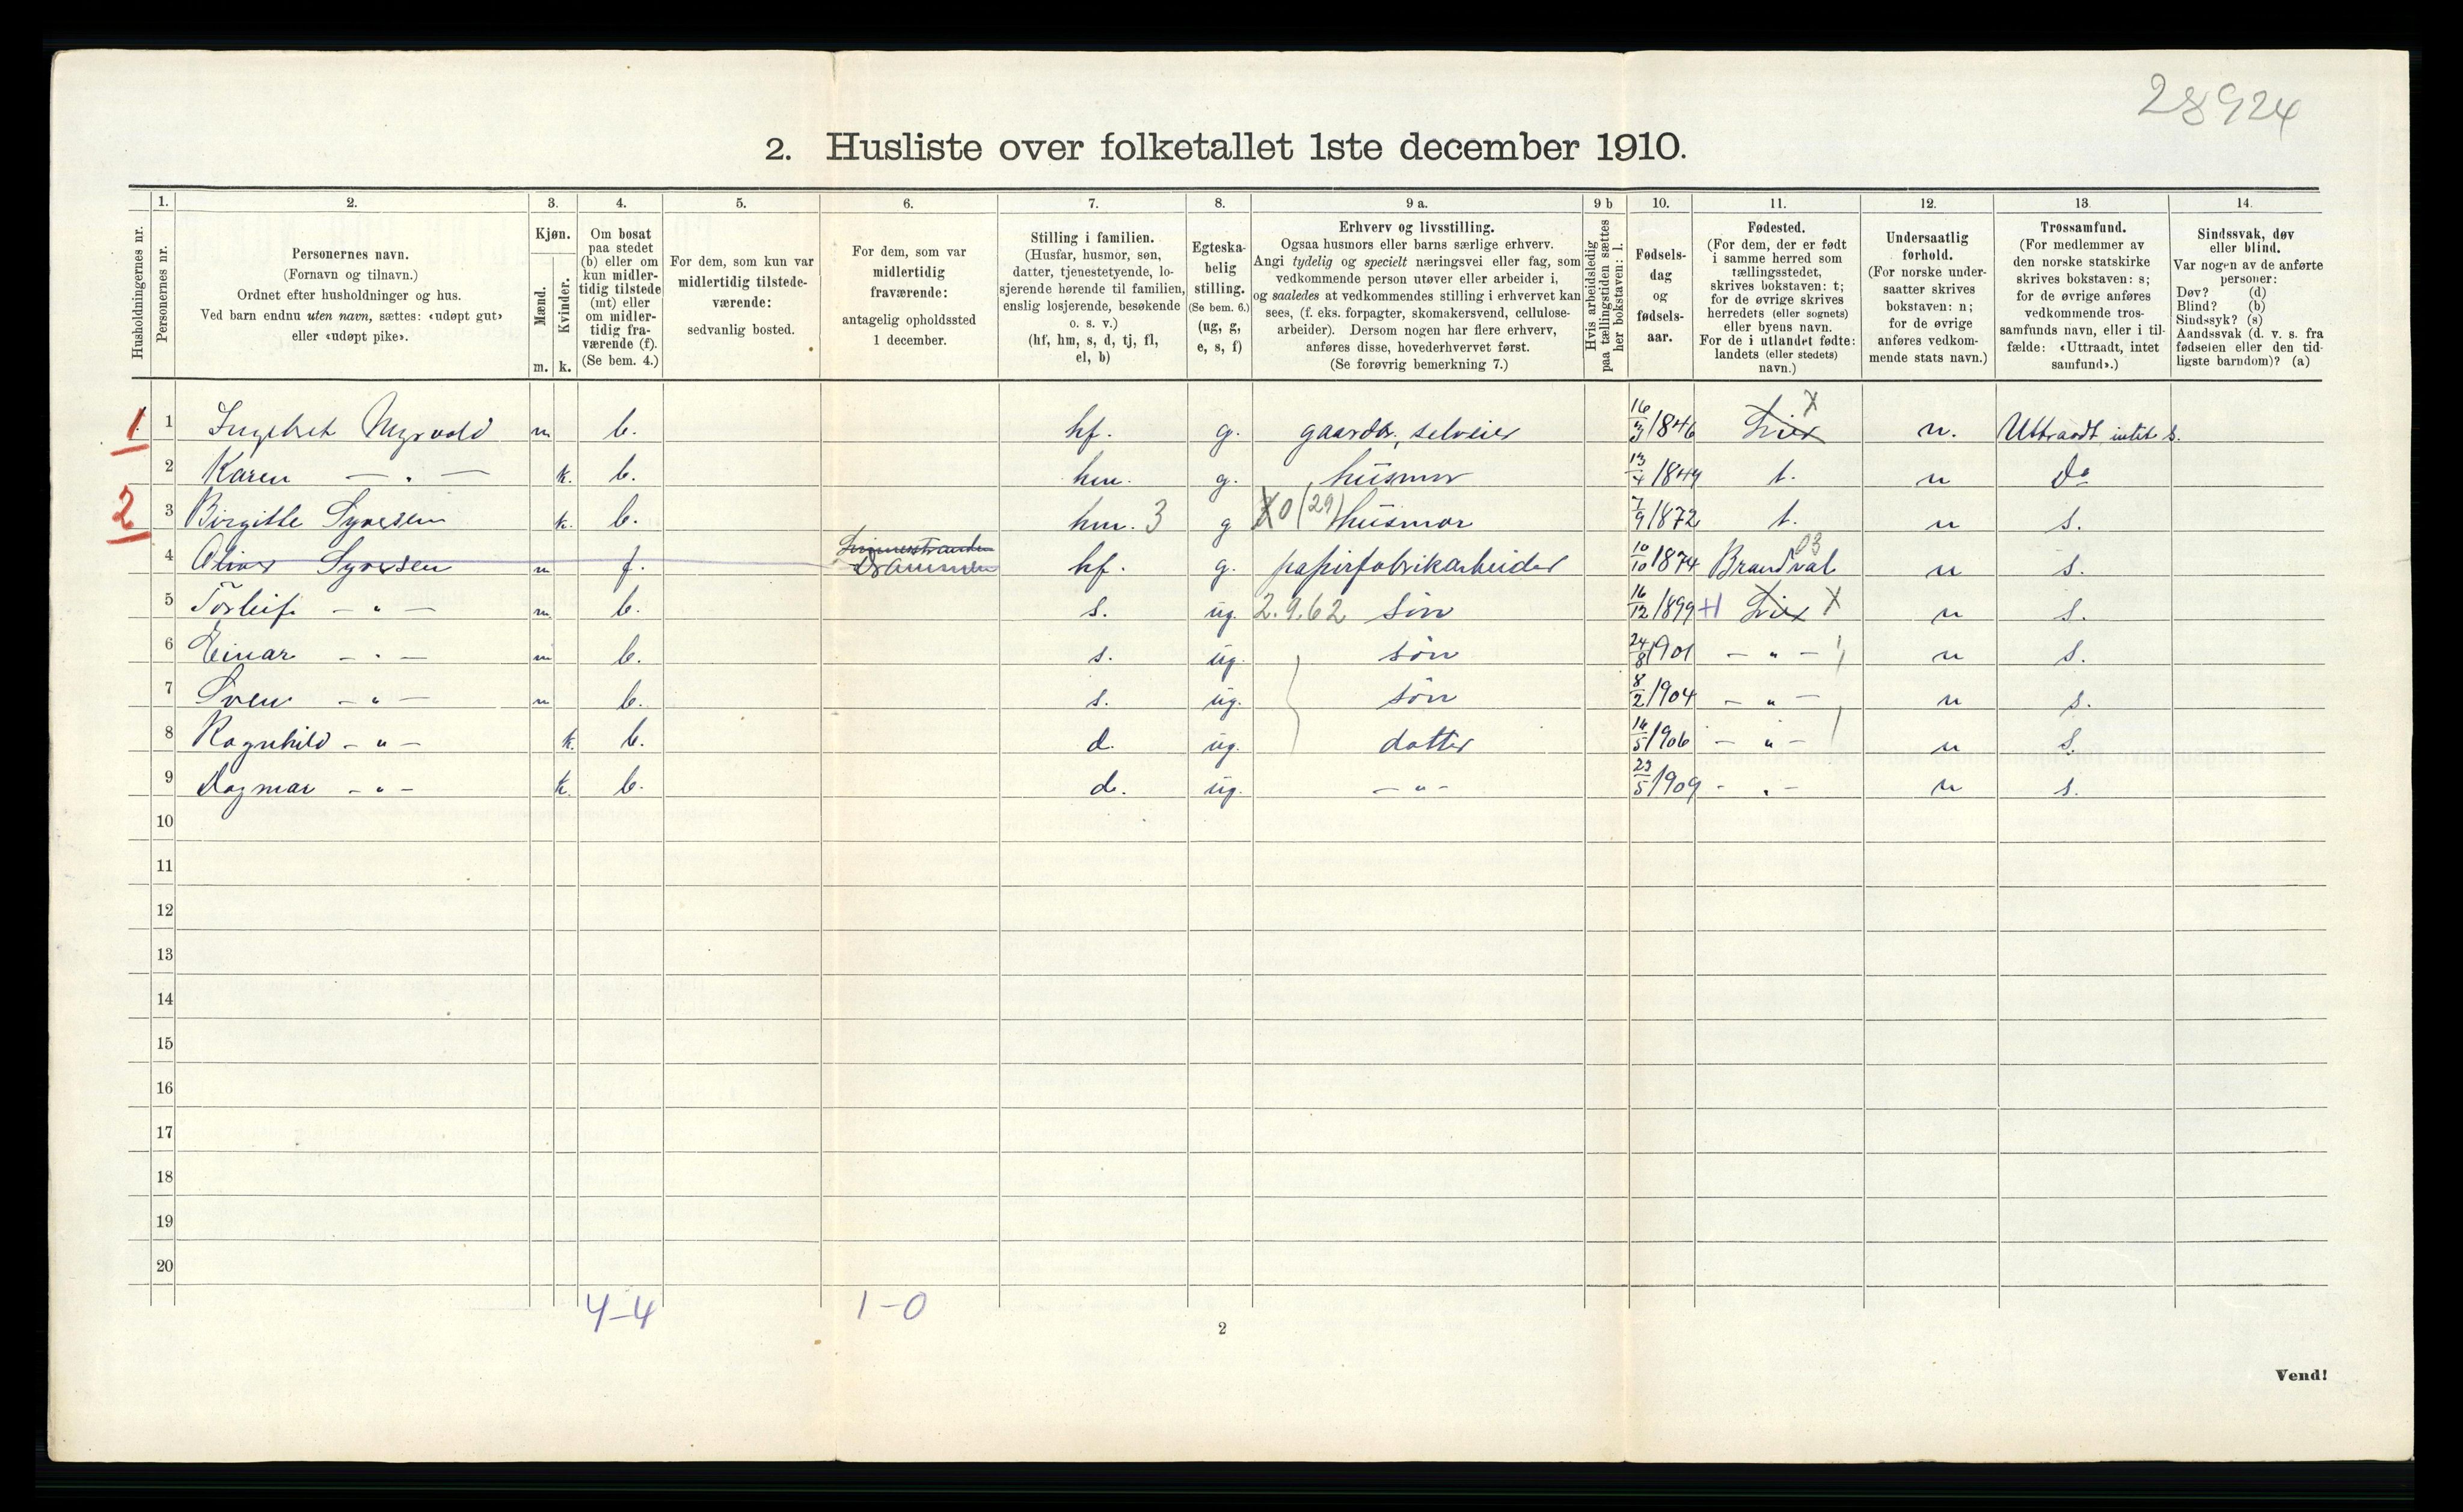 28924
2. Husliste over folketallet 1ste december 1910.
Husholdningernes nr.
1.
Personernes nr.
2.
Personernes navn.
(Fornavn og tilnavn.)
Ordnet efter husholdninger og hus.
Ved barn endnu uten navn, sættes: «udøpt gut»
eller «udøpt pike».
3.
Kjøn.
Mænd.
Kvinder.
m. k.
4.
Om bosat
paa stedet
(b) eller om
kun midler-
tidig tilstede
(mt) eller
om midler-
tidig fra-
værende (f).
(Se bem. 4.)
5.
For dem, som kun var
midlertidig tilstede-
værende:
sedvanlig bosted.
6.
For dem, som var
midlertidig
fraværende:
antagelig opholdssted
1 december.
7.
Stilling i familien.
(Husfar, husmor, søn,
datter, tjenestetyende, lo-
sjerende hørende til familien,
enslig losjerende, besøkende
o. s. v.)
(hf, hm, s, d, tj, fl,
el, b)
8.
Egteska-
belig
stilling.
(Se bem. 6.)
(ug, g,
e, s, f)
9 a.
Erhverv og livsstilling.
Ogsaa husmors eller barns særlige erhverv.
Angi tydelig og specielt næringsvei eller fag, som
vedkommende person utøver eller arbeider i,
og saaledes at vedkommendes stilling i erhvervet kan
sees, (f. eks. forpagter, skomakersvend, cellulose-
arbeider). Dersom nogen har flere erhverv,
anføres disse, hovederhvervet først.
(Se forøvrig bemerkning 7.)
9 b
Hvis arbeidsledig
paa tællingstiden sættes
her bokstaven: l.
10.
Fødsels-
dag
og
fødsels-
aar.
11.
Fødested.
(For dem, der er født
i samme herred som
tællingsstedet,
skrives bokstaven: t;
for de øvrige skrives
herredets (eller sognets)
eller byens navn.
For de i utlandet fødte:
landets (eller stedets)
navn.)
12.
Undersaatlig
forhold.
(For norske under-
saatter skrives
bokstaven: n;
for de øvrige
anføres vedkom-
mende stats navn.)
13.
Trossamfund.
(For medlemmer av
den norske statskirke
skrives bokstaven: s;
for de øvrige anføres
vedkommende tros-
samfunds navn, eller i til-
fælde: «Uttraadt, intet
samfund».)
14.
Sindssvak, døv
eller blind.
Var nogen av de anførte
personer:
Døv? (d)
Blind? (b)
Sindssyk? (s)
Aandssvak (d. v. s. fra
fødselen eller den tid-
ligste barndom)? (a)
1 1 Ingebret Myrvold m b. hf. g. gaardbr, selveier 16/3 1846 Lier X n. Uttraadt, intet s.
2 Karen — " — k. b. hm. g. husmor 13/4 1849 t. n do
2 3 Birgitte Syversen k. b. hm. 3 g X0 (29) husmor 7/9 1872 t. n s.
4 Oliver Syversen m f. Drammen hf. g. papirfabrikarbeider 10/10 1874 Brandval 03 n s.
5 Torleif — " — m b. s. ug. 2.9.62 søn 16/12 1899 H Lier X n s.
6 Einar — " — m b. s. ug. søn 24/8 1901 — " — n s.
7 Sven — " — m b. s. ug. søn 8/2 1904 — " — n s.
8 Ragnhild — " — k. b. d. ug. datter 14/5 1906 — " — n s.
9 Dagmar — " — k. b. d. ug. — " — 23/5 1909 — " — n s.
10
11
12
13
14
15
16
17
18
19
20
4-4 1-0
2
Vend!